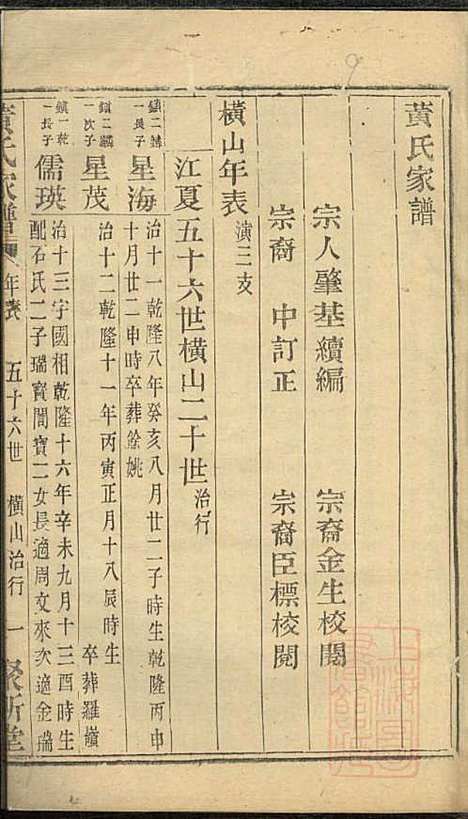 黃氏家譜
宗人肇基續編　宗裔金生校閱
宗裔　中訂正　宗裔臣標校閱
橫山年表 演三支
江夏五十六世橫山二十世 治行
鎮二 一長子 星海 治十一乾隆八年癸亥八月廿二子時生乾隆丙申
十月廿二申時卒葬餘姚
鎮二 一次子 星茂 治十二乾隆十一年丙寅正月十八辰時生
卒葬羅嶺
鎮一乾 一長子 儒瑛 治十三字國相乾隆十六年辛未九月十三酉時生
配石氏二子瑞寶閏寶二女長適周文來次適金瑞
黃氏家譜 年表 五十六世 橫山治行 一 聚斯堂